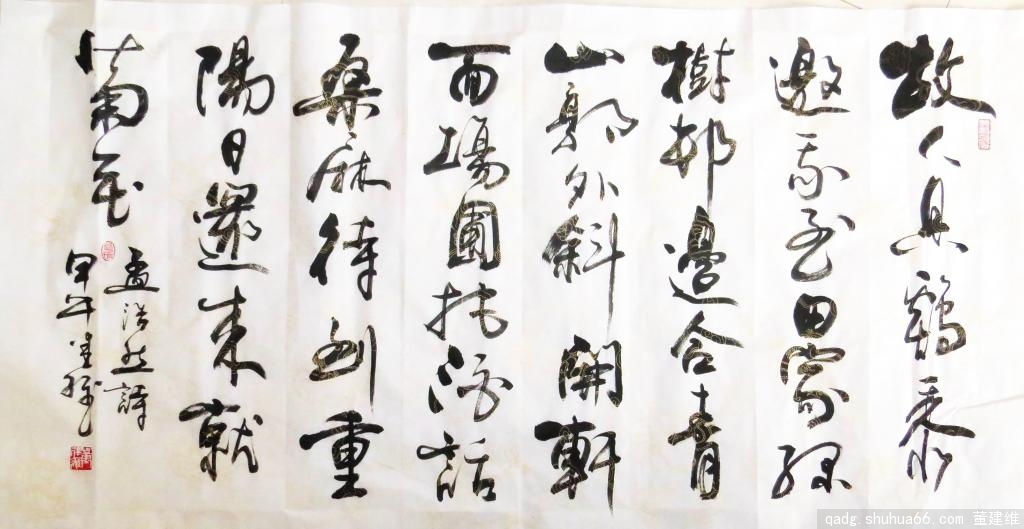 故人具鷄黍
邀我至田家緑
樹邨邊合青
山郭外斜開軒
面場圃把酒話
桑麻待到重
陽日還来就
菊花
孟浩然詩
甲午
qadg.shuhua66.com 董建维